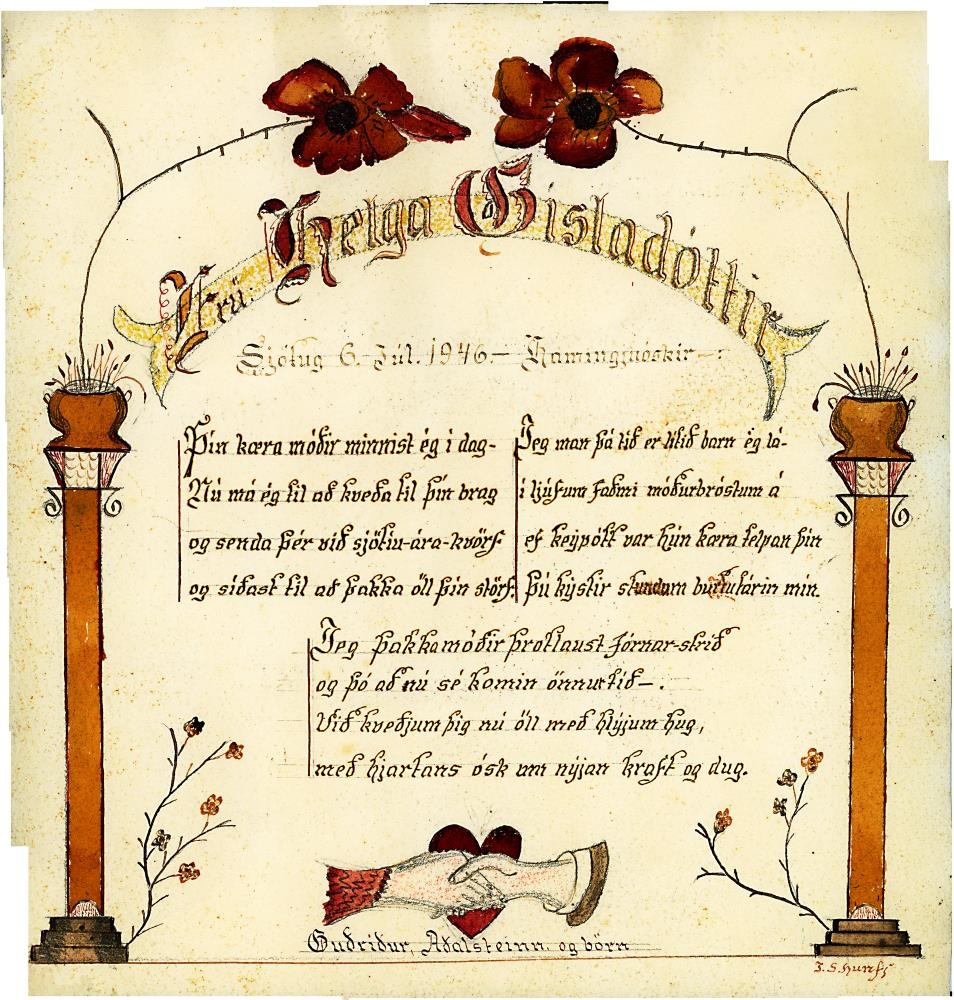 Frú Helga Gisladóttir
Sjötug 6. Júl. 1946 — Hamingjuóskir —
Þin kæra móðir minnist ég i dag-
Nú má ég til að kveða til þin brag
og senda þér við sjötiu-ára-kvörf
og siðast til að þakka öll þin störf.
Jeg man þá tið er litið barn ég lá-
i ljúfum faðmi móðurbróstum á
ef keypótt var hún kæra telpan þin
þú kýstir stundum burtu tárin min.
Jeg þakka móðir þrotlaust fórnar-strið
og þó að nú sé komin önnur tið —.
Við kveðjum þig nú öll með hlýjum hug,
með hjartans ósk um nýjan kraft og dug.
Guðriður, Aðalsteinn, og börn
J. S. Hunf